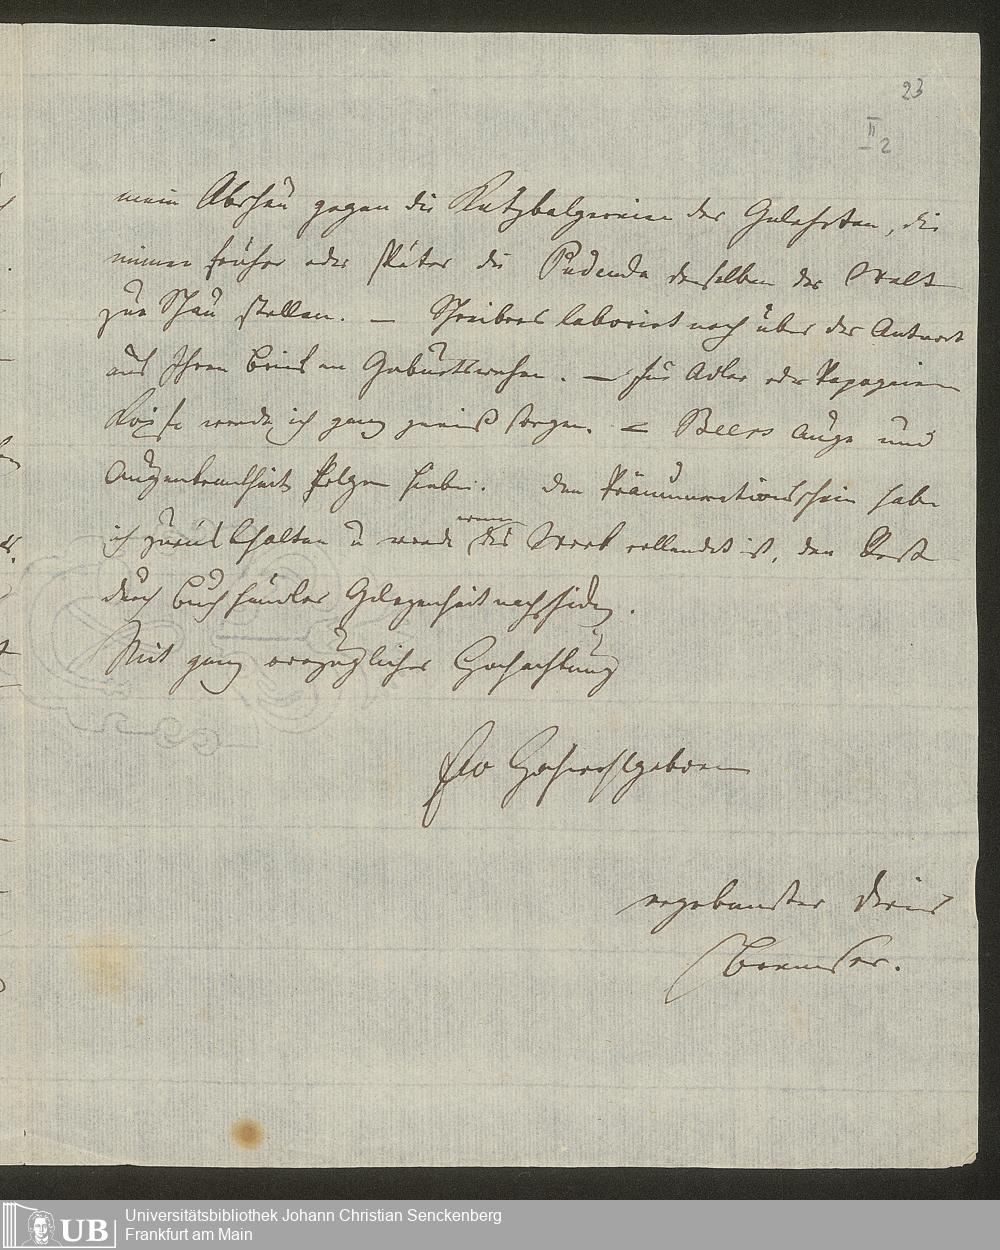 23
II
2
mein Abscheu gegen die Katzbalgereien der Gelehrten, die
immer früher oder später die Pudenda derselben der Welt
zur Schau stellen. — Schreibers laborirt noch über der Antwort
auf Ihren Brief an Geburtswehen. — für Adler oder Papageien
Köpfe werde ich ganz gewiß sorgen. — Beers Auge und
Augenkrankheit folgen hiebei. Den Pränumerationsschein habe
ich zurückbehalten u werde wenn das Werk vollendet ist, den Rest
durch Buchhändler Gelegenheit nachschicken.
Mit ganz vorzüglicher Hochachtung
Ew Hochwohlgeboren
ergebenster Diener
Bremser.
UB
Universitätsbibliothek Johann Christian Senckenberg
Frankfurt am Main